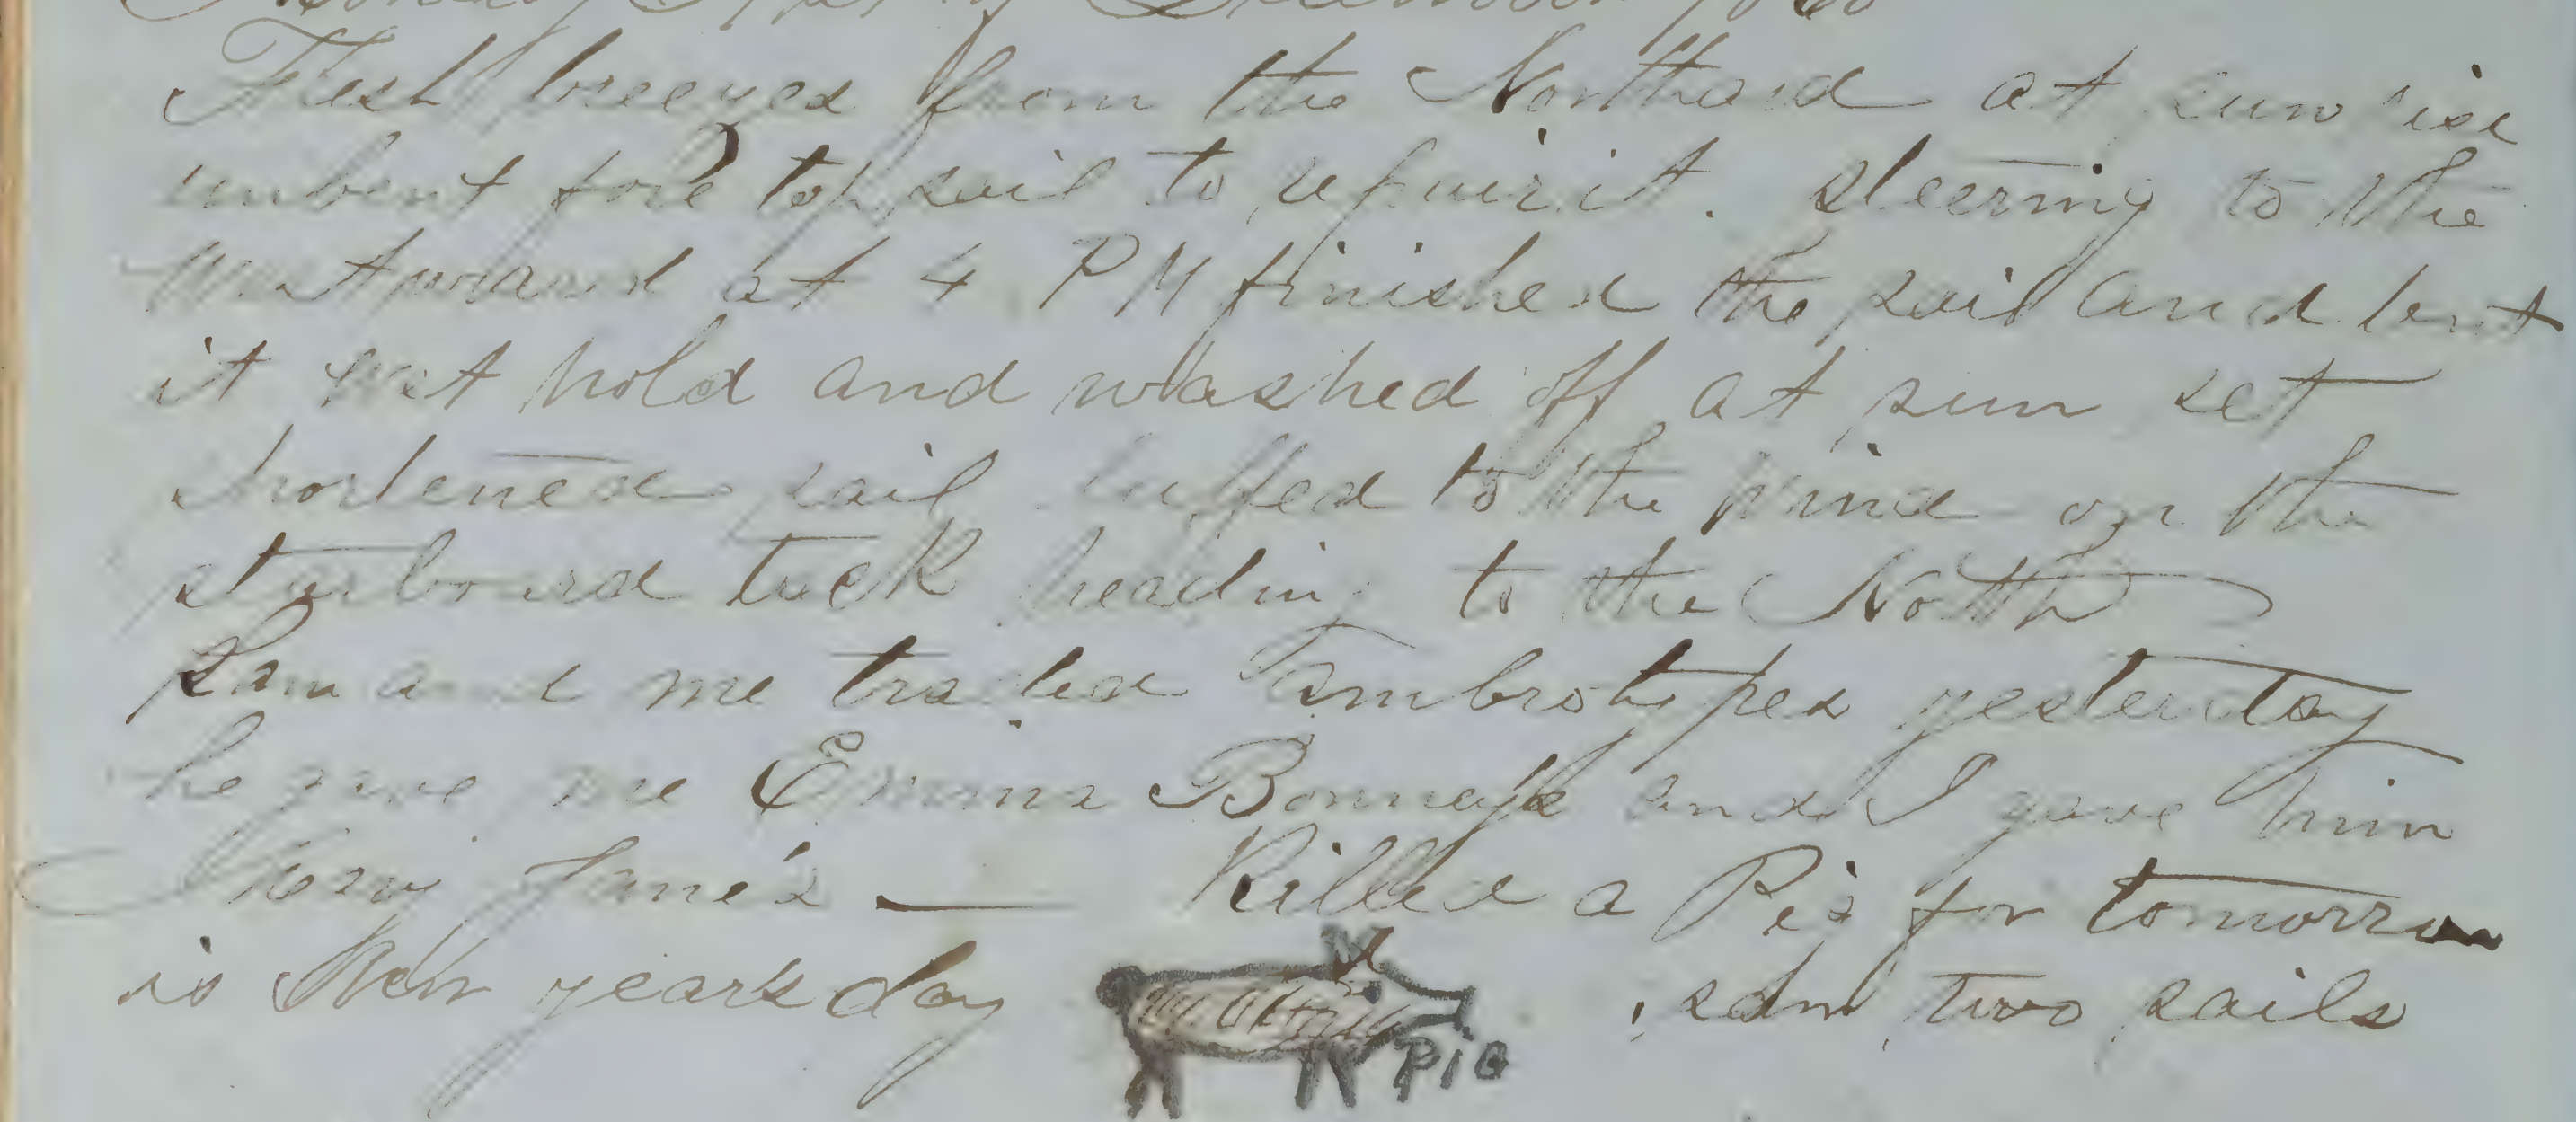 December 1860
Fresh breezes from the Northard at sun rise
unbent fore top sail to repair it. steering to the
Westward at 4 PM finished the sail and bent
it wet hold and washed off at sun set
shortened sail luffed to the wind on the
starboard tack heading to the North
Sam and me traded Ambrotypes yesterday
he gave me Emma Bonney's and I gave him
Mary Jane's — Killed a Pig for tomorrow
is New years day PIG saw two sails